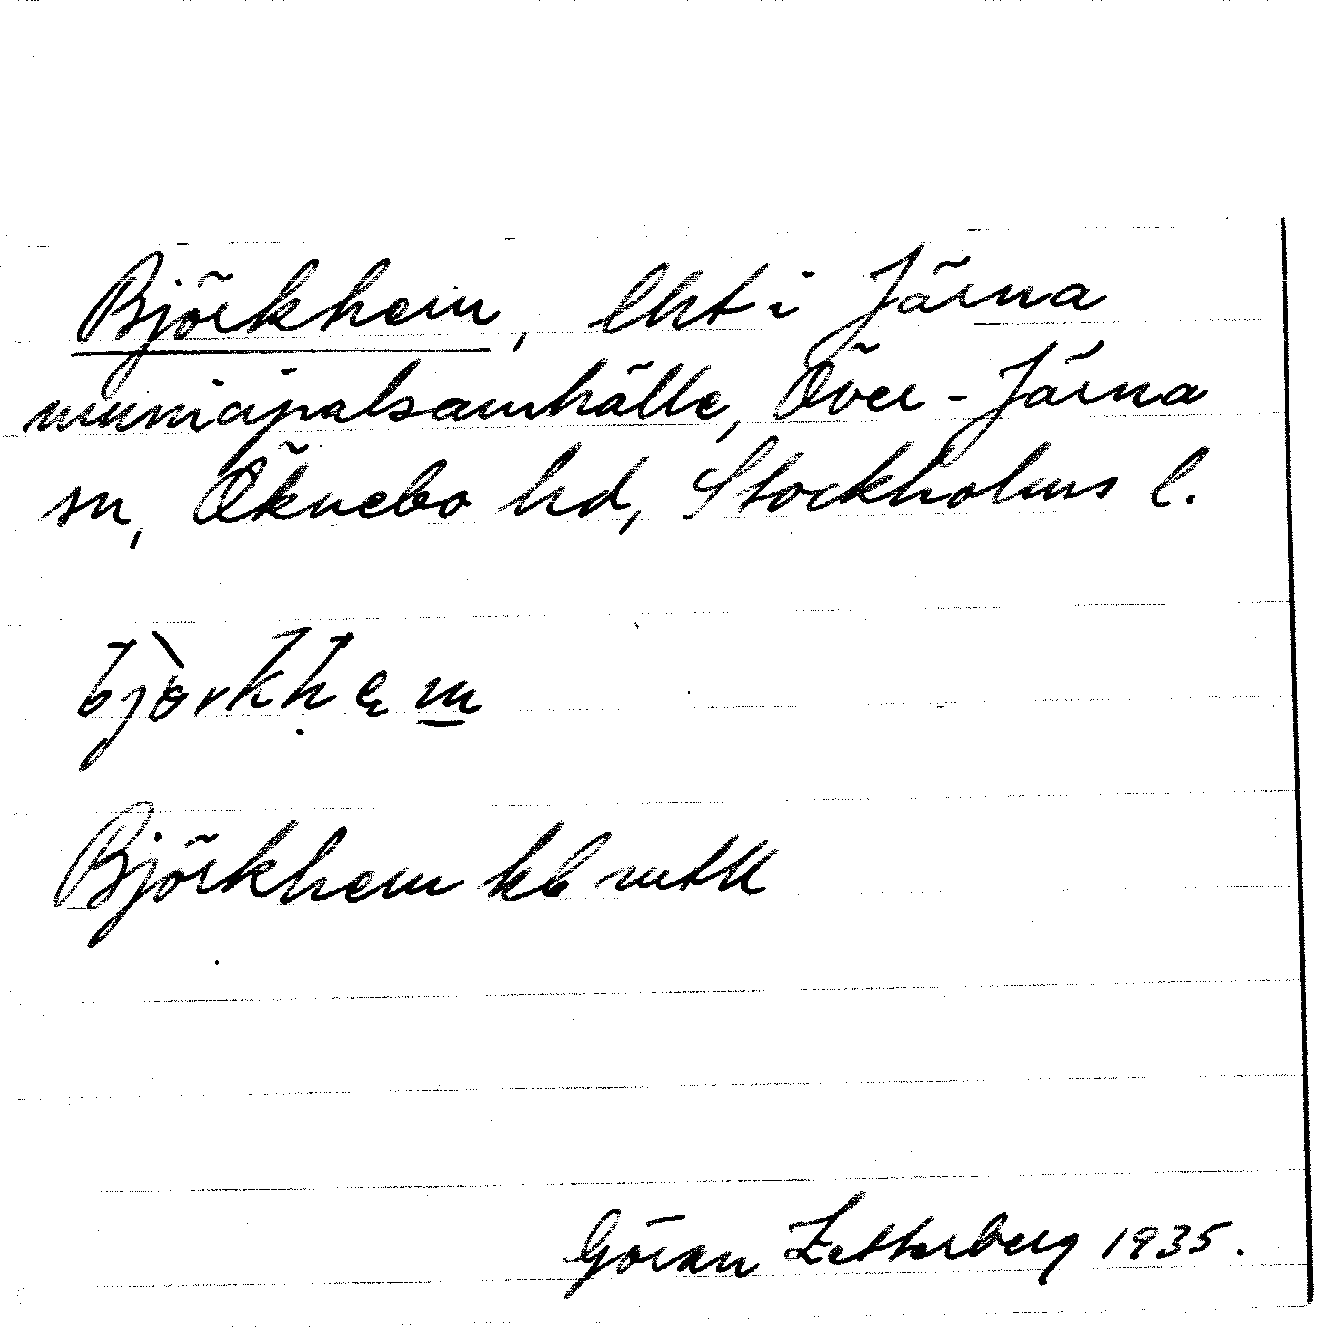 Björkhem, lht i Järna
municipalsamhälle, Över-Järna
sn, Öknebo hd, Stockholms l.
Björkhem kb mtll
Göran Zetterberg 1935.